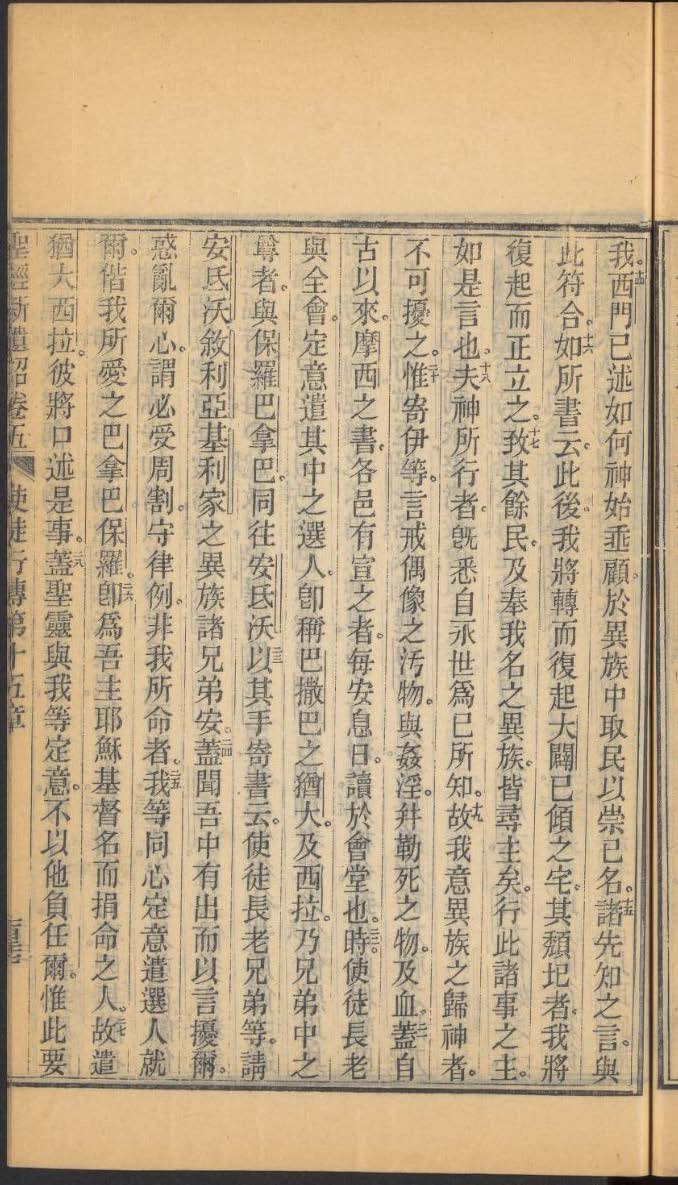 我十四西門已述如何神始垂顧於異族中取民以崇已名。諸十五先知之言。與
此符合。如十六所書云。此後。我將轉而復起大闢已傾之宅。其頹圮者。我將
復起而正立之。致十七其餘民。及奉我名之異族。皆尋主矣。行此諸事之主。
如是言也。夫十八神所行者。旣悉自永世爲已所知。故十九我意異族之歸神者。
不可擾之。惟二十寄伊等。言戒偶像之汚物。與姦淫。幷勒死之物。及血。蓋二一自
古以來。摩西之書。各邑有宣之者。每安息日。讀於會堂也。時二二使徒長老
與全會。定意遣其中之選人。卽稱巴撒巴之猶大。及西拉。乃兄弟中之
尊者。與保羅巴拿巴。同往安氐沃。以二三其手寄書云。使徒長老兄弟等。請
安氐沃敘利亞基利家之異族諸兄弟安。蓋二四聞吾中有出而以言擾爾。
惑亂爾心。謂必受周割。守律例。非我所命者。我二五等同心定意遣選人就
爾。偕我所愛之巴拿巴保羅。卽二六爲吾主耶穌基督名而捐命之人。故二七遣
猶大西拉。彼將口述是事。蓋二八聖靈與我等定意。不以他負任爾。惟此要
聖經新遺詔卷五 使徒行傳第十五章